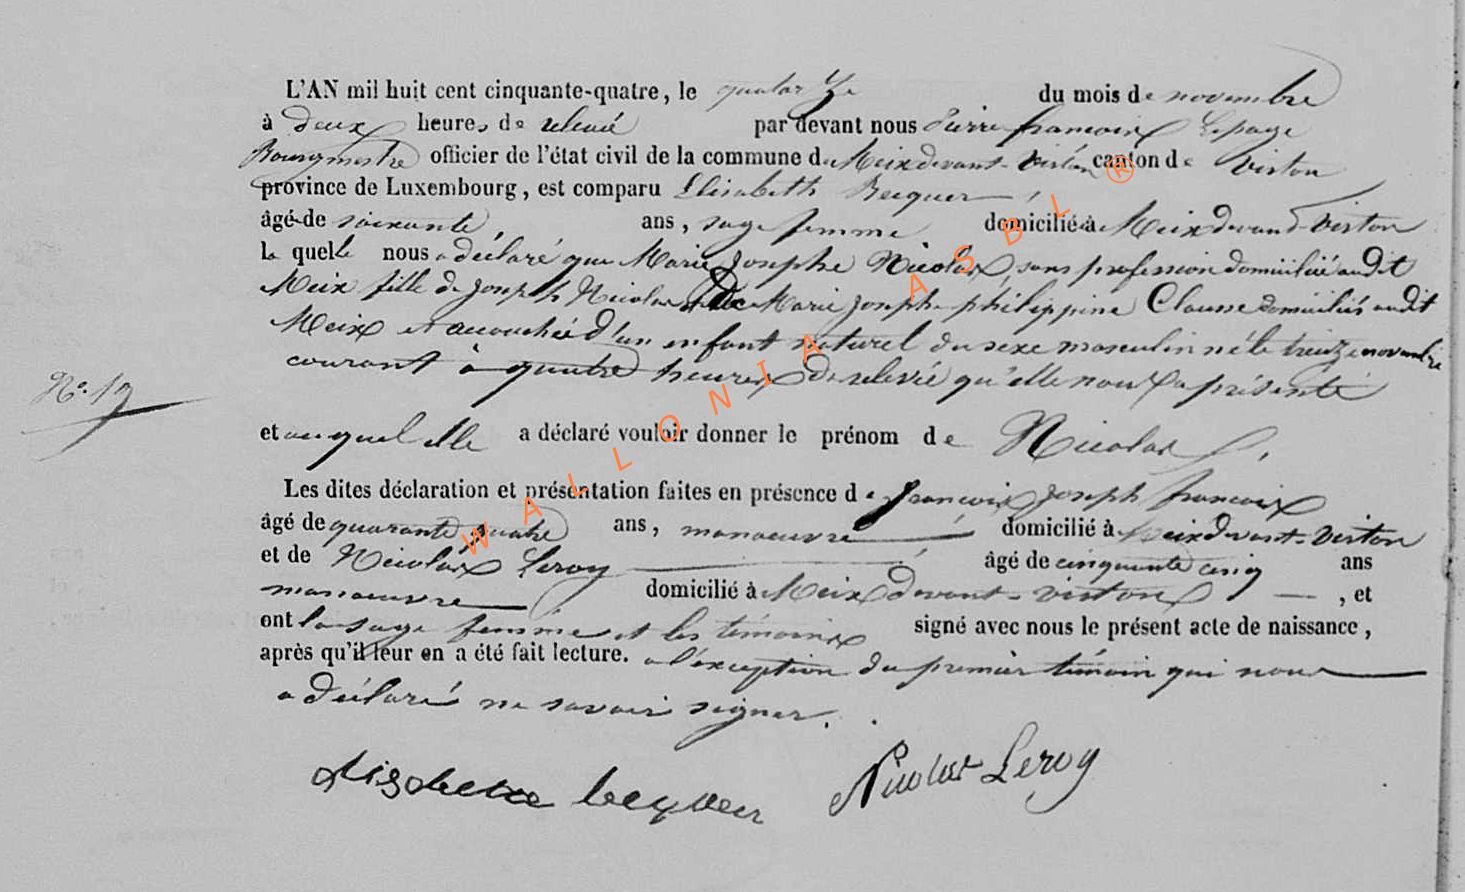 L'AN mil huit cent cinquante-quatre, le quatorze du mois de novembre
à deux heures de relevée par devant nous Pierre françois Lepage
Bourgmestre officier de l'état civil de la commune de Meix devant-Virton canton de Virton
province de Luxembourg, est comparu Elisabeth Becquer,
âgé de soixante, ans, sage femme domicilié à Meix devand-Virton
la quelle nous a déclaré que Marie Josephe Nicolas, sans profession domiciliée audit
Meix fille de Joseph Nicolas de Marie Josephe philippine Clausse domiciliés audit
Meix est accouchée d'un enfant naturel du sexe masculin né le treize novembre
courant à quatre heures de relevée qu'elle nous a présenté
N° 19
et auquel elle a déclaré vouloir donner le prénom de Nicolas,
Les dites déclaration et présentation faites en présence de françois Joseph françois
âgé de quarante quatre ans, manoeuvre domicilié à Meix devant-Virton
et de Nicolas Leroy âgé de cinquante cinq ans
manoeuvre domicilié à Meix devant-virton, et
ont la sage femme et les témoins signé avec nous le présent acte de naissance,
après qu'il leur en a été fait lecture. a l'exception du premier témoin qui nous
a déclaré ne savoir signer.
Nicolas Leroy
WALLONIA ASBL ®